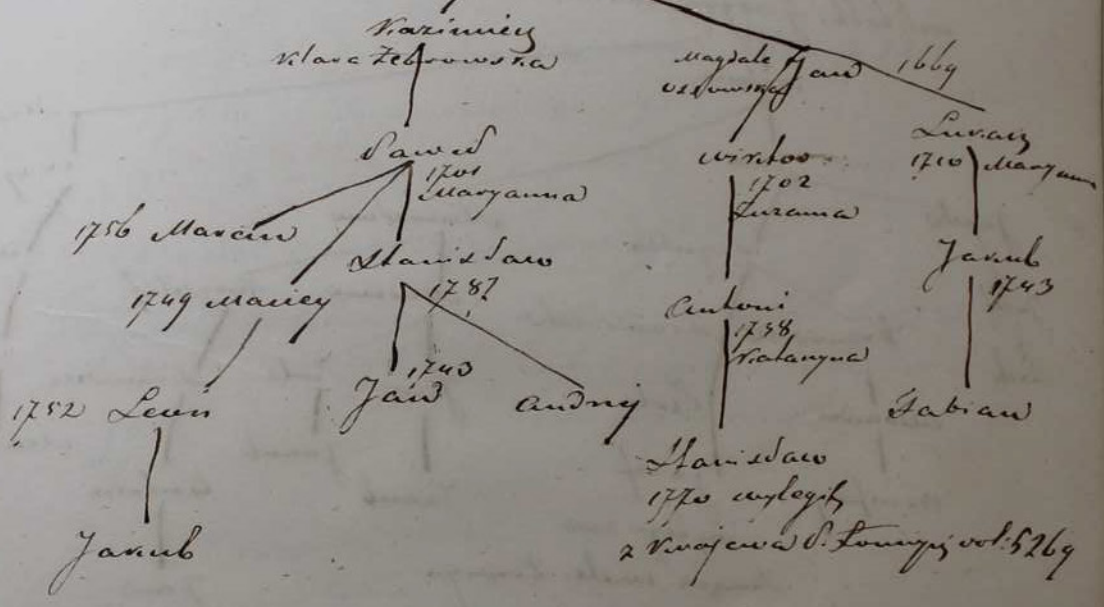 Kazimierz
Klara Żebrowska
Magdale Jan 1669
Paweł
1701
Maryanna
Wiktor
1702
Zuzanna
Łukasz
1710 Maryanna
1756 Marcin
Stanisław
1787
1749 Maciej
Antoni
1738
Katarzyna
Jakub
1743
1752 Lewis
1743
Jan
Andrzej
Fabian
Stanisław
1770 wylegit
z Kwojewa P. Łomżyn vol: 5269
Jakub